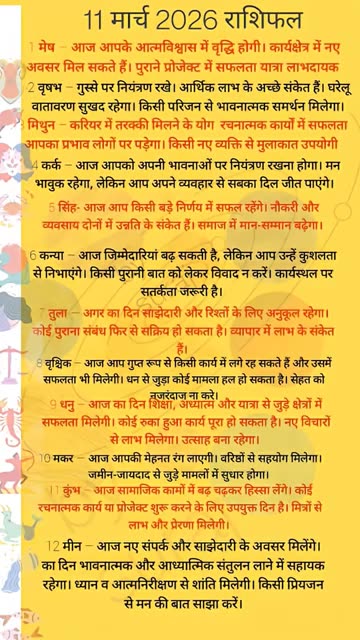 11 मार्च 2026 राशिफल
1 मेष – आज आपके आत्मविश्वास में वृद्धि होगी। कार्यक्षेत्र में नए
अवसर मिल सकते हैं। पुराने प्रोजेक्ट में सफलता यात्रा लाभदायक
2 वृषभ – गुस्से पर नियंत्रण रखे। आर्थिक लाभ के अच्छे संकेत हैं। घरेलू
वातावरण सुखद रहेगा। किसी परिजन से भावनात्मक समर्थन मिलेगा।
3 मिथुन – करियर में तरक्की मिलने के योग रचनात्मक कार्यों में सफलता
आपका प्रभाव लोगों पर पड़ेगा। किसी नए व्यक्ति से मुलाकात उपयोगी
4 कर्क – आज आपको अपनी भावनाओं पर नियंत्रण रखना होगा। मन
भावुक रहेगा, लेकिन आप अपने व्यवहार से सबका दिल जीत पाएंगे।
5 सिंह- आज आप किसी बड़े निर्णय में सफल रहेंगे। नौकरी और
व्यवसाय दोनों में उन्नति के संकेत हैं। समाज में मान-सम्मान बढ़ेगा।
6 कन्या – आज जिम्मेदारियां बढ़ सकती है, लेकिन आप उन्हें कुशलता
से निभाएंगे। किसी पुरानी बात को लेकर विवाद न करें। कार्यस्थल पर
सतर्कता जरूरी है।
7 तुला – अगर का दिन साझेदारी और रिश्तों के लिए अनुकूल रहेगा।
कोई पुराना संबंध फिर से सक्रिय हो सकता है। व्यापार में लाभ के संकेत
हैं।
8 वृश्चिक – आज आप गुप्त रूप से किसी कार्य में लगे रह सकते हैं और उसमें
सफलता भी मिलेगी। धन से जुड़ा कोई मामला हल हो सकता है। सेहत को
नजरंदाज ना करे।
9 धनु – आज का दिन शिक्षा, अध्यात्म और यात्रा से जुड़े क्षेत्रों में
सफलता मिलेगी। कोई रुका हुआ कार्य पूरा हो सकता है। नए विचारों
से लाभ मिलेगा। उत्साह बना रहेगा।
10 मकर – आज आपकी मेहनत रंग लाएगी। वरिष्ठों से सहयोग मिलेगा।
जमीन-जायदाद से जुड़े मामलों में सुधार होगा।
11 कुंभ – आज सामाजिक कामों में बढ़ चढ़कर हिस्सा लेंगे। कोई
रचनात्मक कार्य या प्रोजेक्ट शुरू करने के लिए उपयुक्त दिन है। मित्रों से
लाभ और प्रेरणा मिलेगी।
12 मीन – आज नए संपर्क और साझेदारी के अवसर मिलेंगे।
का दिन भावनात्मक और आध्यात्मिक संतुलन लाने में सहायक
रहेगा। ध्यान व आत्मनिरीक्षण से शांति मिलेगी। किसी प्रियजन
से मन की बात साझा करें।